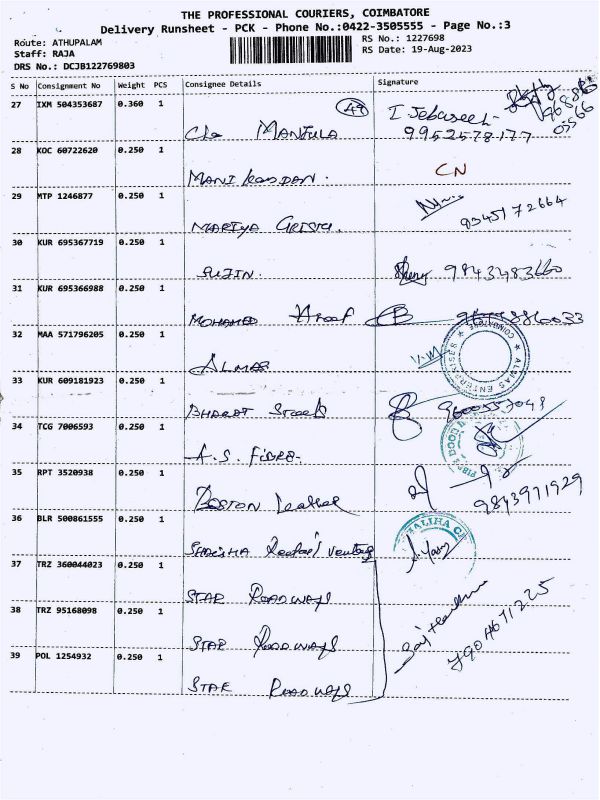 THE PROFESSIONAL COURIERS, COIMBATORE
Delivery Runsheet - PCK - Phone No.:0422-3505555 - Page No.:3
Route: ATHUPALAM
RS No.: 1227698
Staff: RAJA
RS Date: 19-Aug-2023
DRS No.: DCJB122769803
S No Consignment No Weight PCS Consignee Details Signature
27 IXM 504353687 0.360 1 49
C/o MANJULA I Jebaseel 9952578177
28 KOC 60722620 0.250 1
MANI CN
29 MTP 1246877 0.250 1
MARIYA 9345172664
30 KUR 695367719 0.250 1
SUJIN. 9843483660
31 KUR 695366988 0.250 1
MOHAMED
32 MAA 571796205 0.250 1
ALMAS ALMAS ENTERPRISES COIMBATORE
33 KUR 609181923 0.250 1
BHARAT Steels 9600557048
34 TCG 7006593 0.250 1
A.S. FIBRE
35 RPT 3520938 0.250 1
BOSTON Leather 9843971929
36 BLR 500861555 0.250 1
37 TRZ 360044023 0.250 1
STAR ROADWAYS
38 TRZ 95168098 0.250 1
STAR ROADWAYS
39 POL 1254932 0.250 1
STAR ROADWAYS